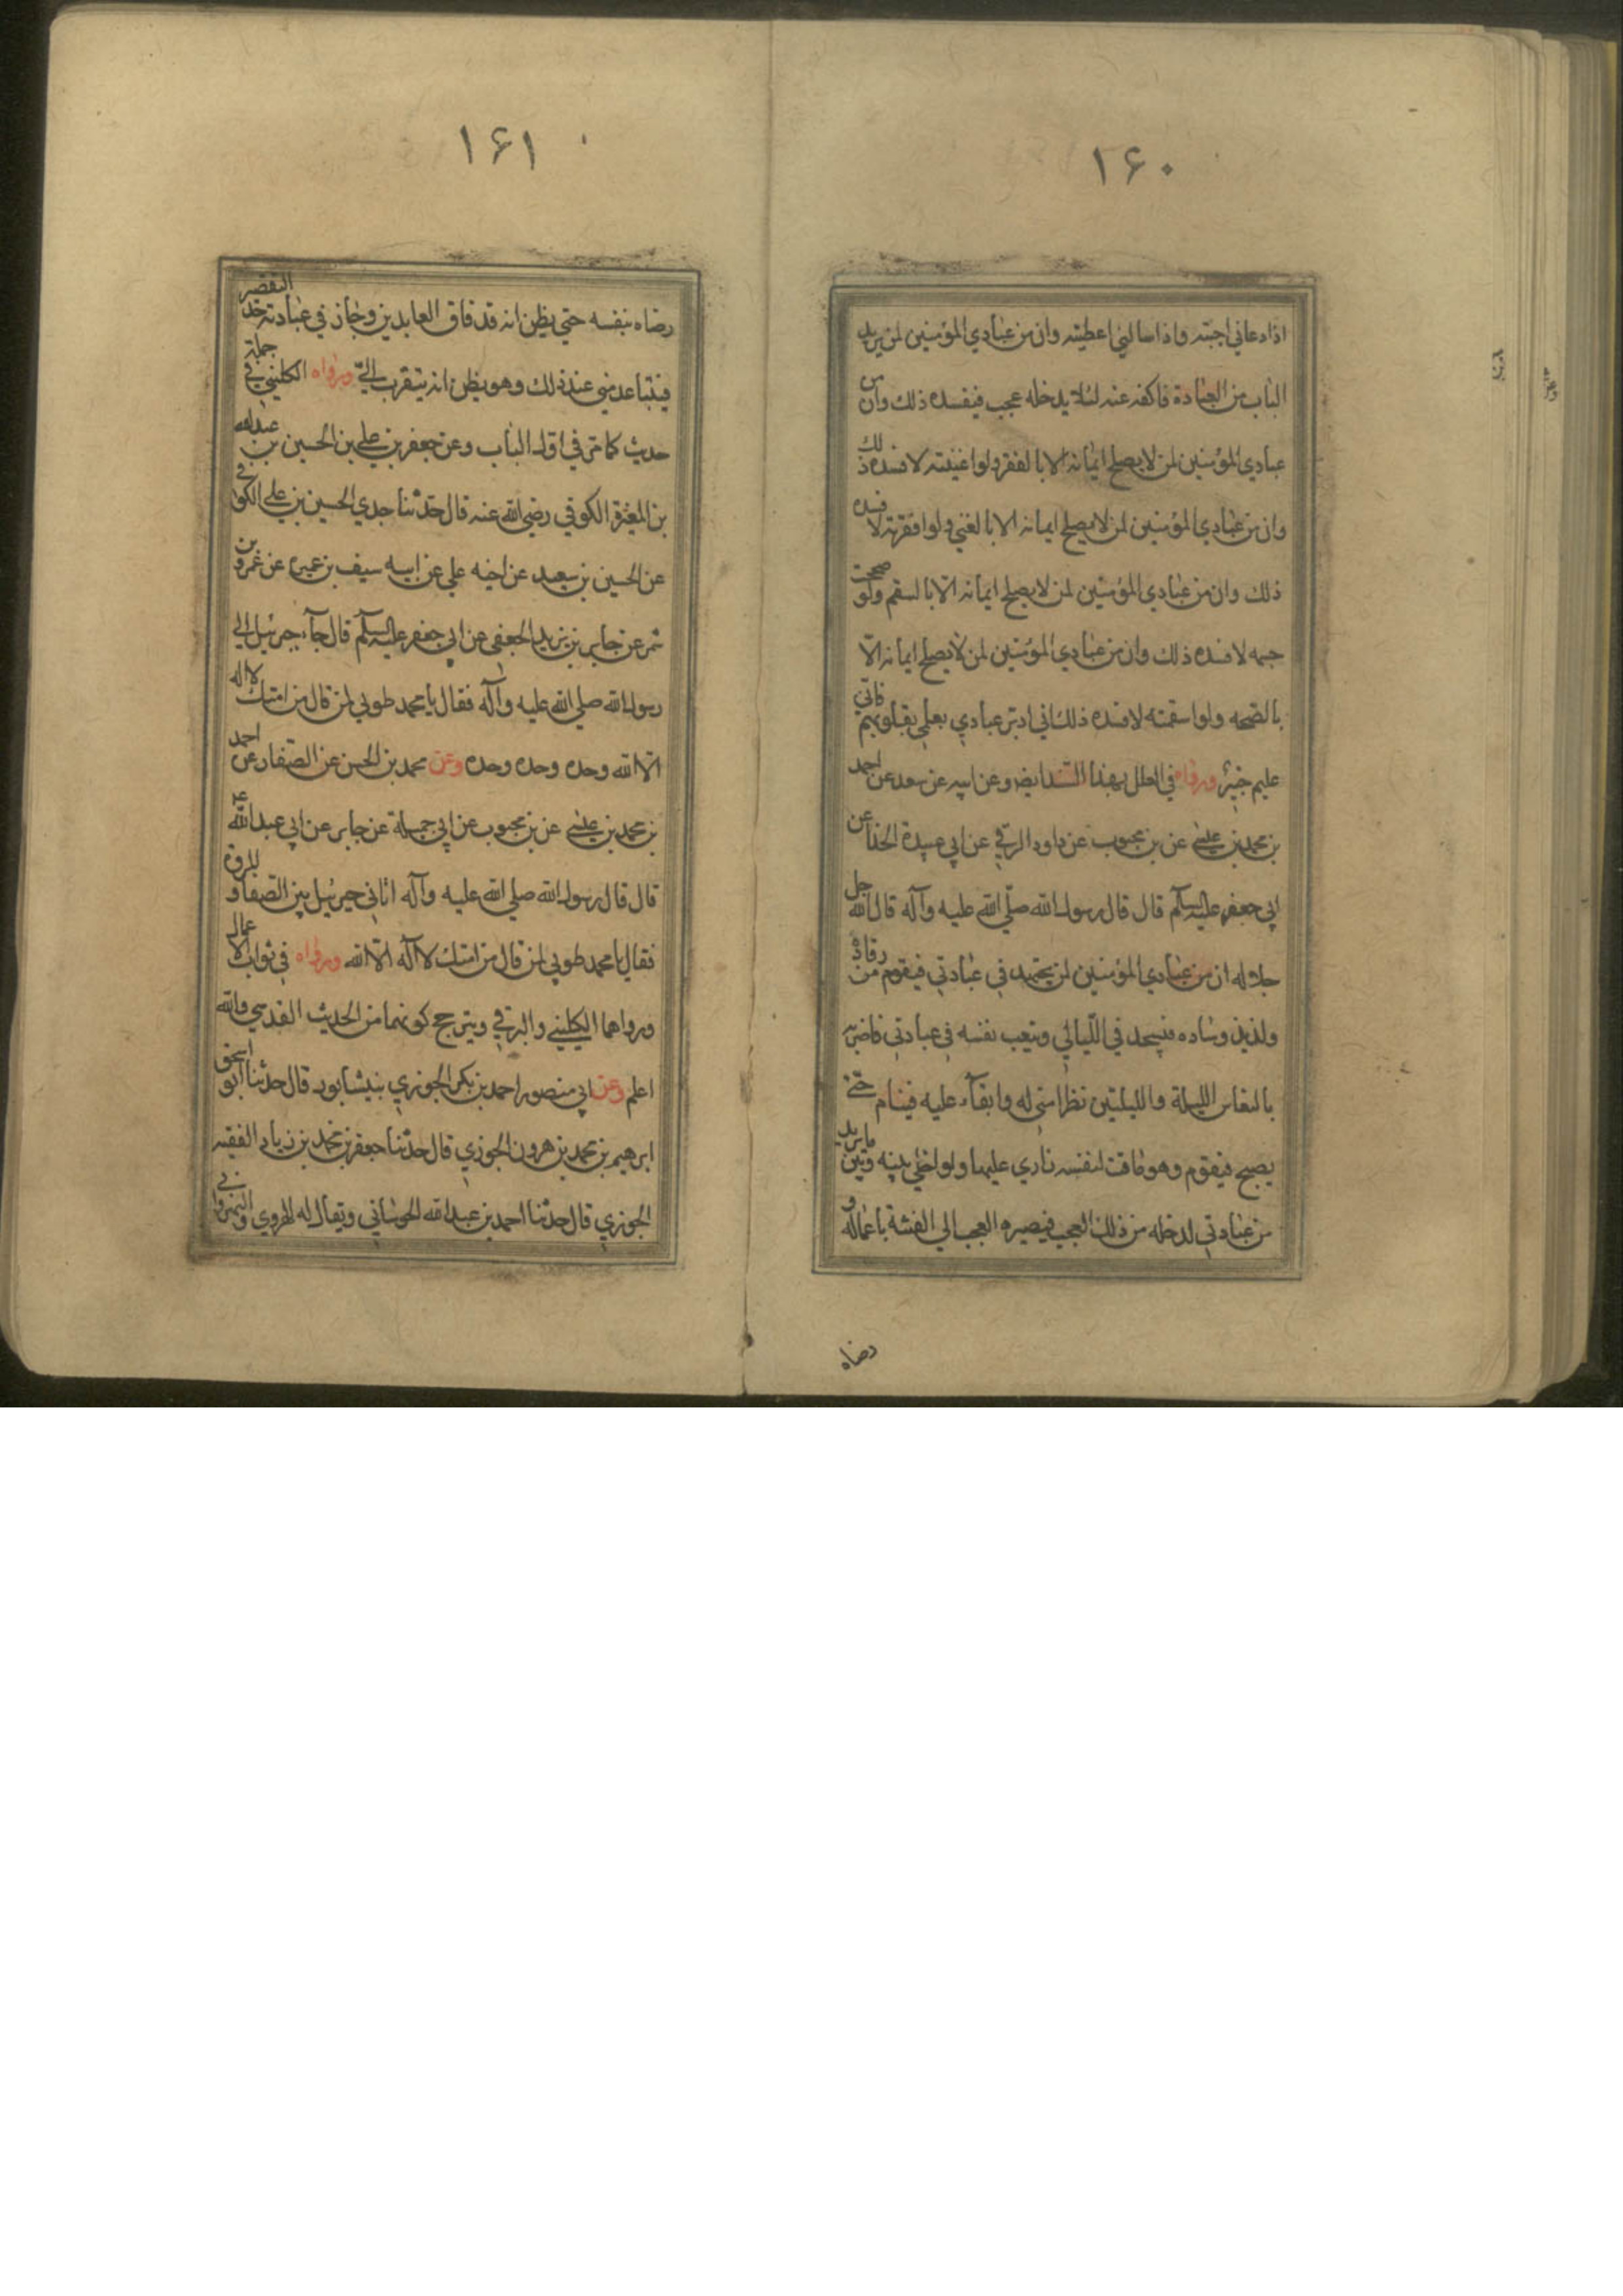 ۱۶۰
اذا دعاني اجبته واذا سالني اعطيته وان من عبادي المؤمنين لمن يريد
الباب من العبادة فاكفه عنه لئلا يدخله عجب فيفسده ذلك وان من
عبادي المؤمنين لمن لا يصلح ايمانه الا بالفقر ولو اغنيته لافسده ذلك
وان من عبادي المؤمنين لمن لا يصلح ايمانه الا بالغني ولو افقرته لافسده
ذلك وان من عبادي المؤمنين لمن لا يصلح ايمانه الا بالسقم ولو صححت
جسمه لافسده ذلك وان من عبادي المؤمنين لمن لا يصلح ايمانه الا
بالصحه ولو اسقمته لافسده ذلك اني ادبر عبادي بعلمي بقلوبهم فاني
عليم خبير ورواه في العلل بهذا السند ايضا وعن ابيه عن سعد عن احمد
بن محمد بن عيسي عن بن محبوب عن داود الرقي عن ابي عبيدة الحذا عن
ابي جعفر عليه السلام قال قال رسول الله صلي الله عليه وآله قال الله جل
جلاله ان من عبادي المؤمنين لمن يجتهد في عبادتي فيقوم من رقاده
ولذيذ وساده فيتهجد في الليالي ويتعب نفسه في عبادتي فاضربه
بالنعاس الليلة والليلتين نظرا مني له وابقآء عليه فينام حتي
يصبح فيقوم وهو ماقت لنفسه زاري عليها ولو اخلي بينه وبين ما يريد
من عبادتي لدخله من ذلك العجب فيصيره العجب الي الفتنة باعماله و
رضاه
۱۶۱
رضاه بنفسه حتي يظن انه قد فاق العابدين وجاز في عبادته حد التقصير
فيتباعد مني عند ذلك وهو يظن انه يتقرب الي ورواه الكليني في جملة
حديث كما مر في اول الباب وعن جعفر بن علي بن الحسين بن عبد الله
بن المغيرة الكوفي رضي الله عنه قال حدثنا جدي الحسين بن علي الكوفي
عن الحسين بن سعيد عن اخيه علي عن ابيه سيف بن عميره عن عمرو بن
شمر عن جابر بن يزيد الجعفي عن ابي جعفر عليه السلام قال جآء جبرئيل الي
رسول الله صلي الله عليه وآله فقال يا محمد طوبي لمن قال من امتك لا اله
الا الله وحده وحده وحده وعن محمد بن الحسن عن الصفار عن احمد
بن محمد بن عيسي عن بن محبوب عن ابي جميلة عن جابر عن ابي عبد الله ع
قال قال رسول الله صلي الله عليه وآله اتاني جبرئيل بين الصفا و المروة
فقال يا محمد طوبي لمن قال من امتك لا اله الا الله ورواه في ثواب الاعمال
ورواهما الكليني والبرقي ويترجح كونهما من الحديث القدسي والله
اعلم وعن ابي منصور احمد بن بكر الجوزي بنيشابور قال حدثنا ابو اسحق
ابرهيم بن محمد بن هرون الجوزي قال حدثنا جعفر بن محمد بن زياد الفقيه
الجوزي قال حدثنا احمد بن عبد الله الجوئباني ويقال له الهروي والنهرواني